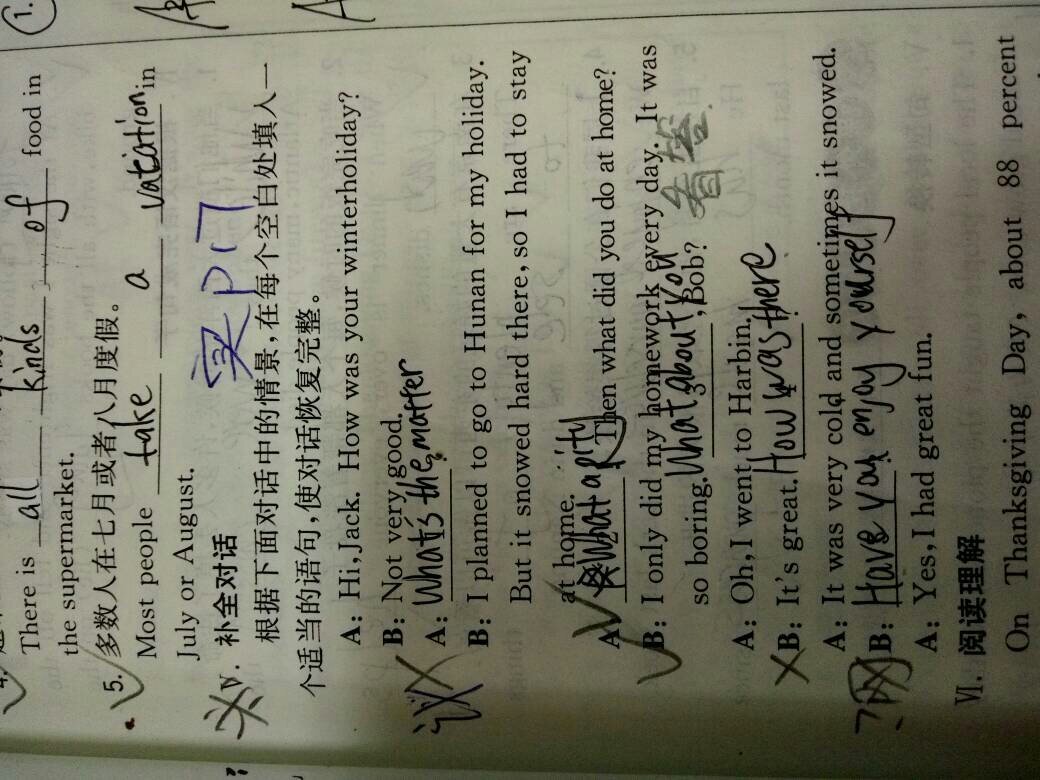 There is all kinds of food in
the supermarket.
5. 多数人在七月或者八月度假。
Most people take a vatation in
July or August.
Ⅴ. 补全对话
根据下面对话中的情景,在每个空白处填入一
个适当的语句,使对话恢复完整。
A: Hi,Jack. How was your winterholiday?
B: Not very good.
A: What's the matter
B: I planned to go to Hunan for my holiday.
But it snowed hard there,so I had to stay
at home.
A: What a pity Then what did you do at home?
B: I only did my homework every day. It was
so boring. What about you ,Bob?
A: Oh,I went to Harbin.
B: It's great. How was there
A: It was very cold and sometimes it snowed.
B: Have you enjoy yourself
A: Yes,I had great fun.
Ⅵ. 阅读理解
On Thanksgiving Day, about 88 percent